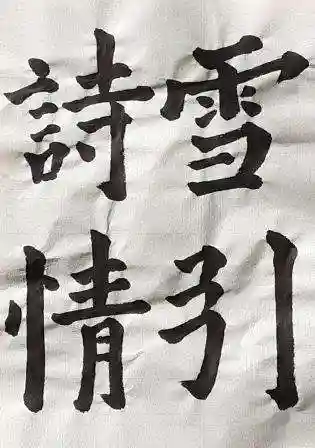 雪引
詩情